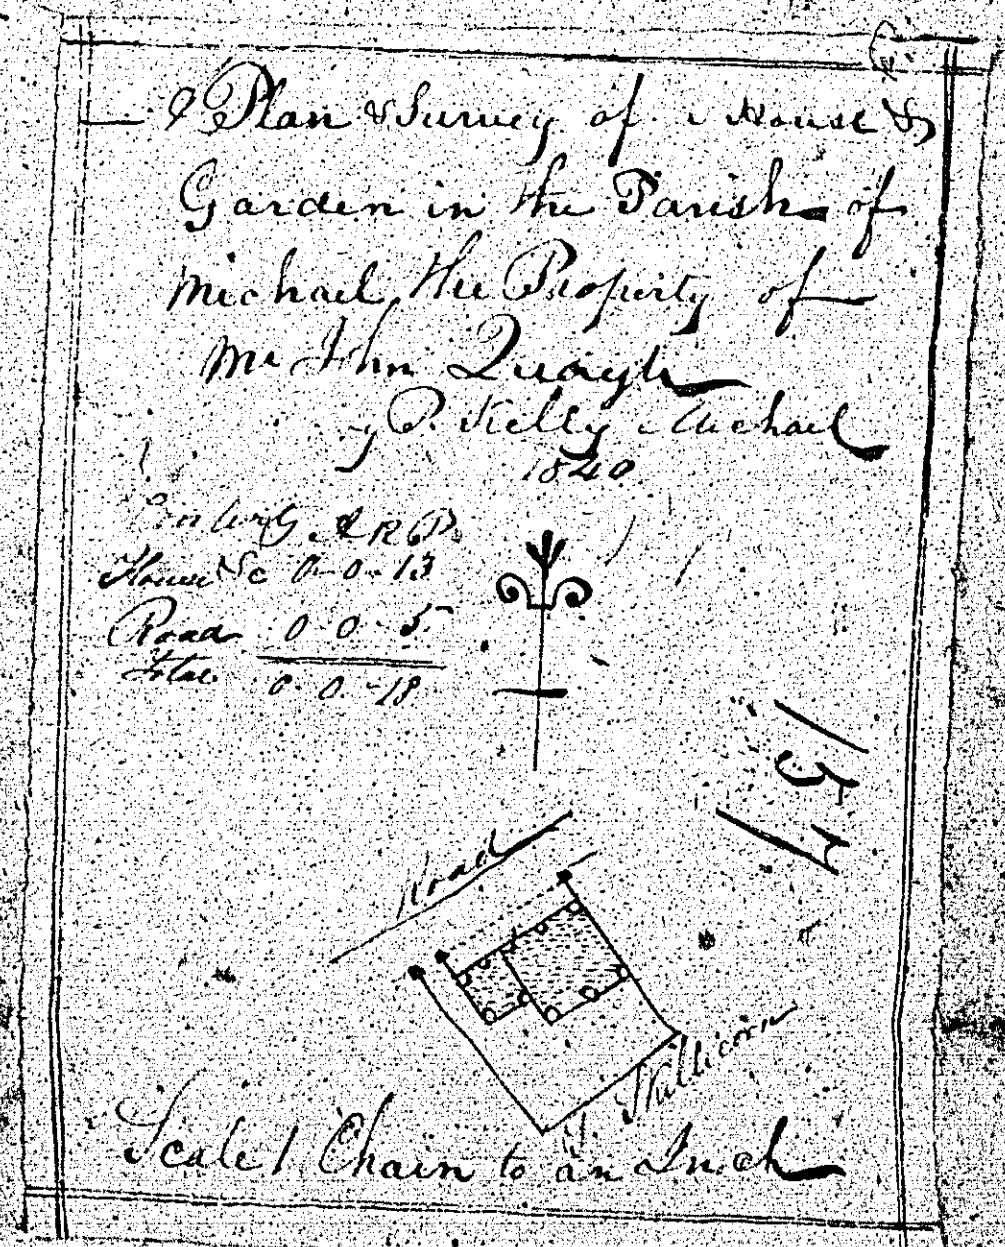 A Plan & Survey of a House &
Garden in the Parish of
Michael the Property of
Mr John Quayle
By P. Kelly Michael
1840
Contents A R P
House &c 0-0-13
Road 0 0 5
Total 0-0-18
Road
Skillicorn
Scale 1 Chain to an Inch